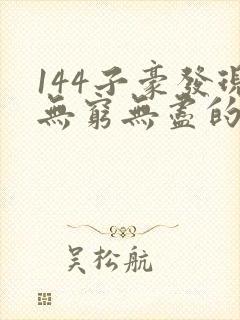 144子豪發現
無窮無盡的
吴松航